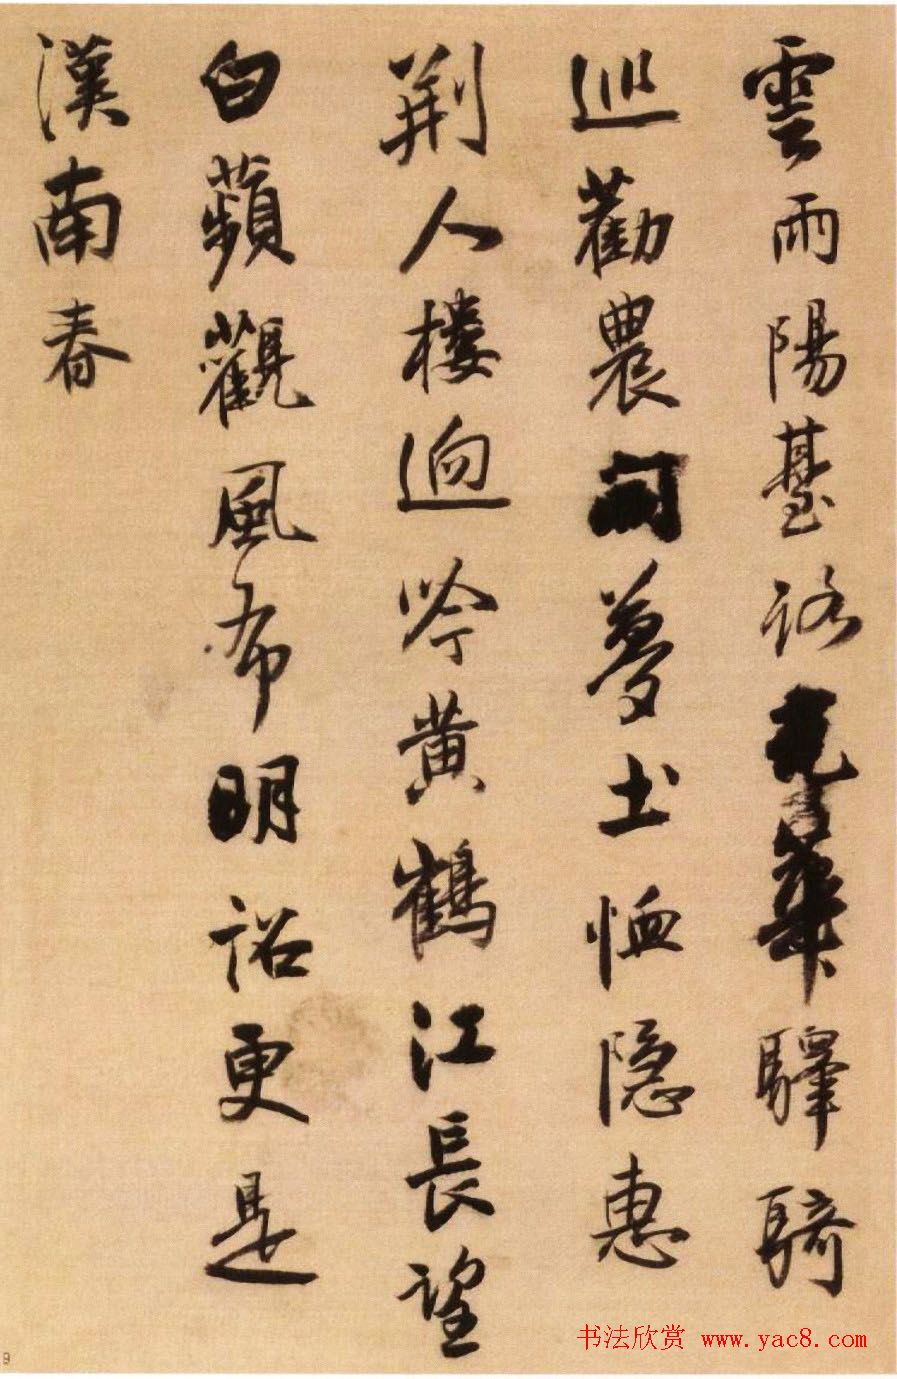 雲雨陽臺路光華驛騎
巡勸農問夢土恤隱惠
荆人楼迥吟黄鶴江長望
白蘋觀風布明詔更是
漢南春
书法欣赏 www.yac8.com
9